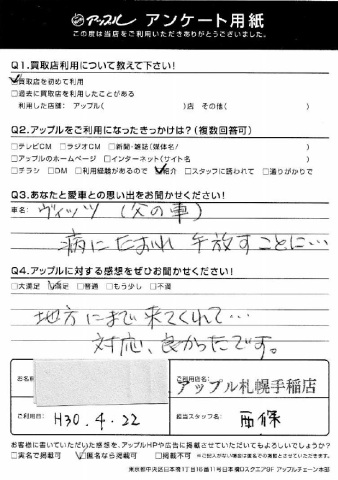 アップル アンケート用紙
この度は当店をご利用いただきありがとうございました。
Q1.買取店利用について教えて下さい!
☑買取店を初めて利用
□過去に買取店を利用したことがある
利用した店種: アップル( )店 その他( )
Q2.アップルをご利用になったきっかけは?(複数回答可)
□テレビCM □ラジオCM □新聞・雑誌(媒体名/ )
□アップルのホームページ □インターネット(サイト名 )
□チラシ □DM □利用経験があるので ☑紹介 □スタッフに誘われて □通りがかりで
Q3.あなたと愛車との思い出をお聞かせください!
車名: ヴィッツ (父の車)
病にたおれ 手放すことに…
Q4.アップルに対する感想をぜひお聞かせください!
□大満足 ☑満足 □普通 □もう少し □不満
地方にまで来てくれて…
対応、良かったです。
お名前
ご利用店名:
アップル札幌手稲店
ご利用日: H30.4.22
担当スタッフ名: 西條
お客様に書いていただいた感想を、アップルHPや広告に掲載させていただいてもよろしいでしょうか?
□実名で掲載可 ☑匿名なら掲載可 □不可 ※ご記入がない場合は匿名での掲載とさせていただきます。
東京都中央区日本橋1丁目16番11号日本橋Dスクエア5F アップルチェーン本部